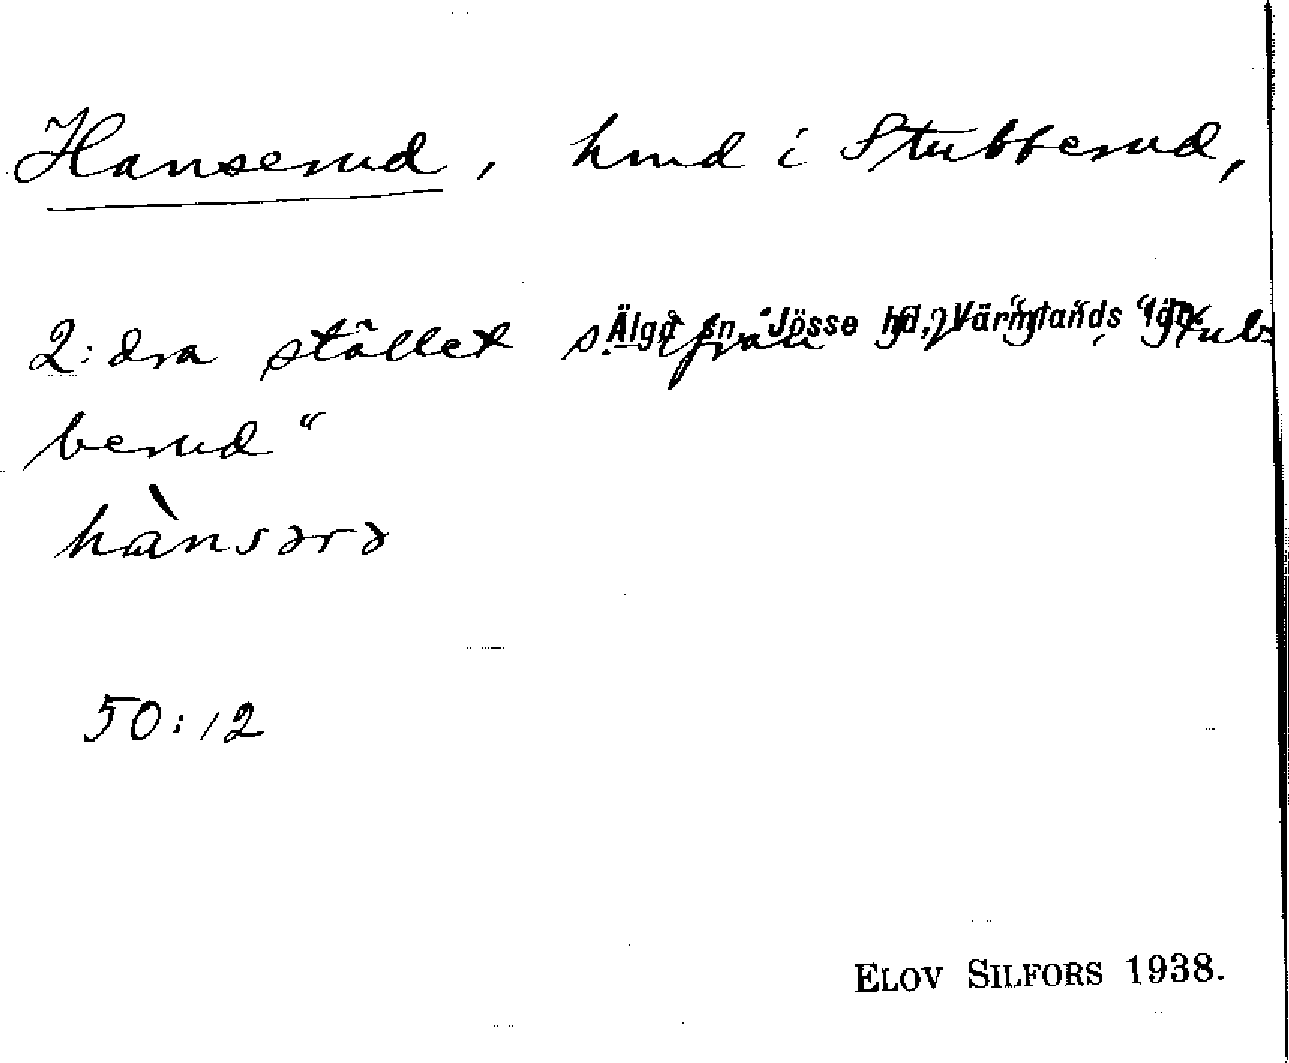 Hanserud, hmd i Stubberud,
Älgå sn, Jösse hd, Värmlands län.
2:dra stället s. ifrån "Stub-
berud"
hànsərə
50:12
ELOV SILFORS 1938.